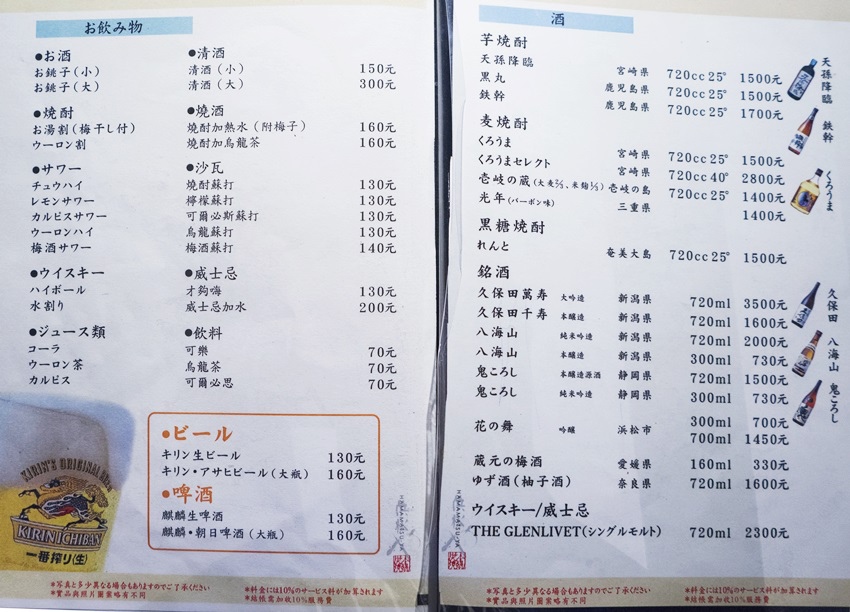 お飲み物
●お酒 ●清酒
お銚子(小) 清酒(小) 150元
お銚子(大) 清酒(大) 300元
●焼酎 ●燒酒
お湯割(梅干し付) 焼酎加熱水(附梅子) 160元
ウーロン割 燒酎加烏龍茶 160元
●サワー ●沙瓦
チュウハイ 燒酎蘇打 130元
レモンサワー 檸檬蘇打 130元
カルピスサワー 可爾必斯蘇打 130元
ウーロンハイ 烏龍蘇打 130元
梅酒サワー 梅酒蘇打 140元
●ウイスキー ●威士忌
ハイボール 才夠嗨 130元
水割り 威士忌加水 200元
●ジュース類 ●飲料
コーラ 可樂 70元
ウーロン茶 烏龍茶 70元
カルピス 可爾必思 70元
●ビール
キリン生ビール 130元
キリン・アサヒビール(大瓶) 160元
●啤酒
麒麟生啤酒 130元
麒麟・朝日啤酒(大瓶) 160元
KIRIN'S ORIGINAL BEER
KIRIN ICHIBAN
一番搾り(生)
HAMAMATSU-YA
*写真と多少異なる場合もありますのでご了承ください
*實品與照片圖案略有不同
*料金には10%のサービス料が加算されます
*結帳需加收10%服務費
酒
芋焼酎
天孫降臨 宮崎県 720cc 25° 1500元
黒丸 鹿児島県 720cc 25° 1500元
鉄幹 鹿児島県 720cc 25° 1700元
麦焼酎
くろうま 宮崎県 720cc 25° 1500元
くろうまセレクト 宮崎県 720cc 40° 2800元
壱岐の蔵(大麦⅔、米麹⅓) 壱岐の島 720cc 25° 1400元
光年(バーボン味) 三重県 1400元
黒糖焼酎
れんと 奄美大島 720cc 25° 1500元
銘酒
久保田萬寿 大吟造 新潟県 720ml 3500元
久保田千寿 本醸造 新潟県 720ml 1600元
八海山 純米吟造 新潟県 720ml 2000元
八海山 本醸造 新潟県 300ml 730元
鬼ころし 本醸造原酒 静岡県 720ml 1500元
鬼ころし 純米吟造 静岡県 300ml 730元
花の舞 吟醸 浜松市 300ml 700元
700ml 1450元
蔵元の梅酒 愛媛県 160ml 330元
ゆず酒(柚子酒) 奈良県 720ml 1600元
ウイスキー/威士忌
THE GLENLIVET(シングルモルト) 720ml 2300元
天孫降臨
鉄幹
くろうま
久保田
八海山
鬼ころし
HAMAMATSU-YA
*写真と多少異なる場合もありますのでご了承ください
*實品與照片圖案略有不同
*料金には10%のサービス料が加算されます
*結帳需加收10%服務費